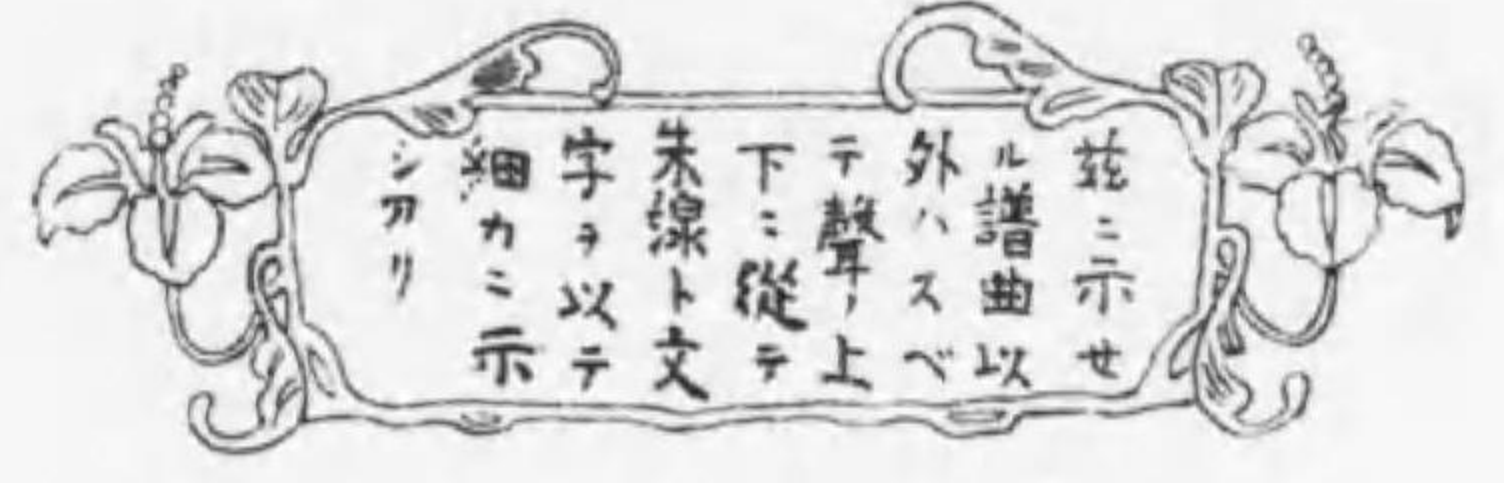 茲ニ示セ
ル譜曲以
外ハスベ
テ聲ノ上
下ニ從テ
朱線ト文
字ヲ以テ
細カニ示
シアリ